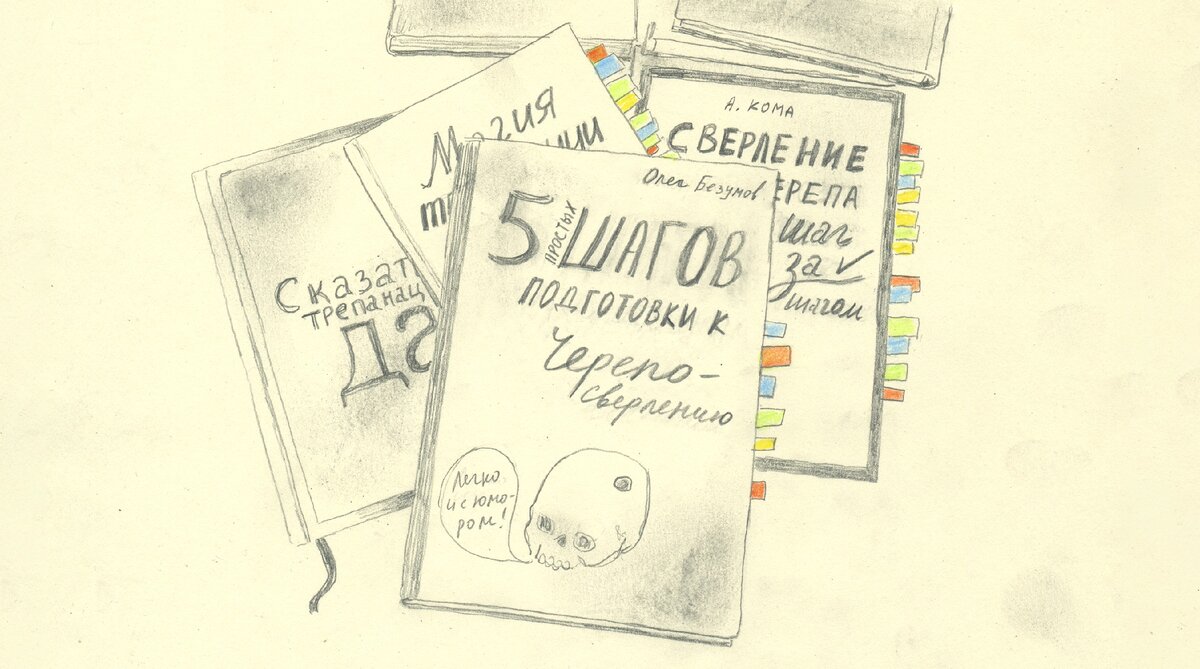 Магия
А. КОМА
СВЕРЛЕНИЕ
ЕРЕПА
шаг
за
шагом
Сказат
трепанац
Да
Олег Безумов
5 ПРОСТЫХ ШАГОВ
ПОДГОТОВКИ К
Черепо-
сверлению
Легко
и с юмо-
ром!